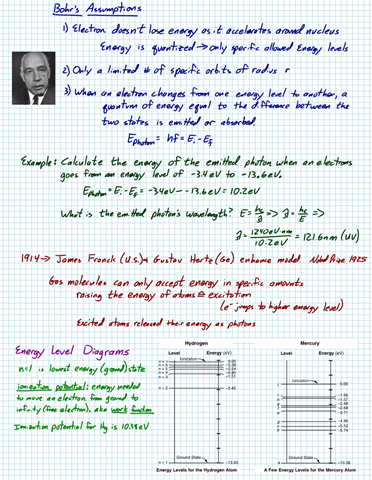 Bohr's Assumptions
1) Electron doesn't lose energy as it accelerates around nucleus
Energy is quantized → only specific allowed Energy levels
2) Only a limited # of specific orbits of radius r
3) When an electron changes from one energy level to another, a
quantum of energy equal to the difference between the
two states is emitted or absorbed.
E photon = hf = Ei - Ef
Example: Calculate the energy of the emitted photon when an electrons
goes from an energy level of -3.4eV to -13.6eV.
E photon = Ei - Ef = -3.4eV - -13.6eV = 10.2eV
What is the emitted photon's wavelength? E = hc/λ => λ = hc/E =>
λ = 1240eV·nm / 10.2eV = 121.6nm (UV)
1914 → James Franck (U.S.) & Gustav Hertz (Ge) enhance model Nobel Prize 1925
Gas molecules can only accept energy in specific amounts
raising the energy of atoms ≡ excitation
(e⁻ jumps to higher energy level)
Excited atoms released their energy as photons
Energy Level Diagrams
n=1 is lowest energy (ground) state
ionization potential: energy needed
to move an electron from ground to
infinity (free electron). aka work function
Ionization potential for Hg is 10.38eV
Hydrogen
Level Energy (eV)
Ionization
n = 3 -1.51
n = 2 -3.40
Ground State
n = 1 -13.60
Energy Levels for the Hydrogen Atom
Mercury
Level Energy (eV)
Ionization 0.00
Ground State
-10.38
A Few Energy Levels for the Mercury Atom